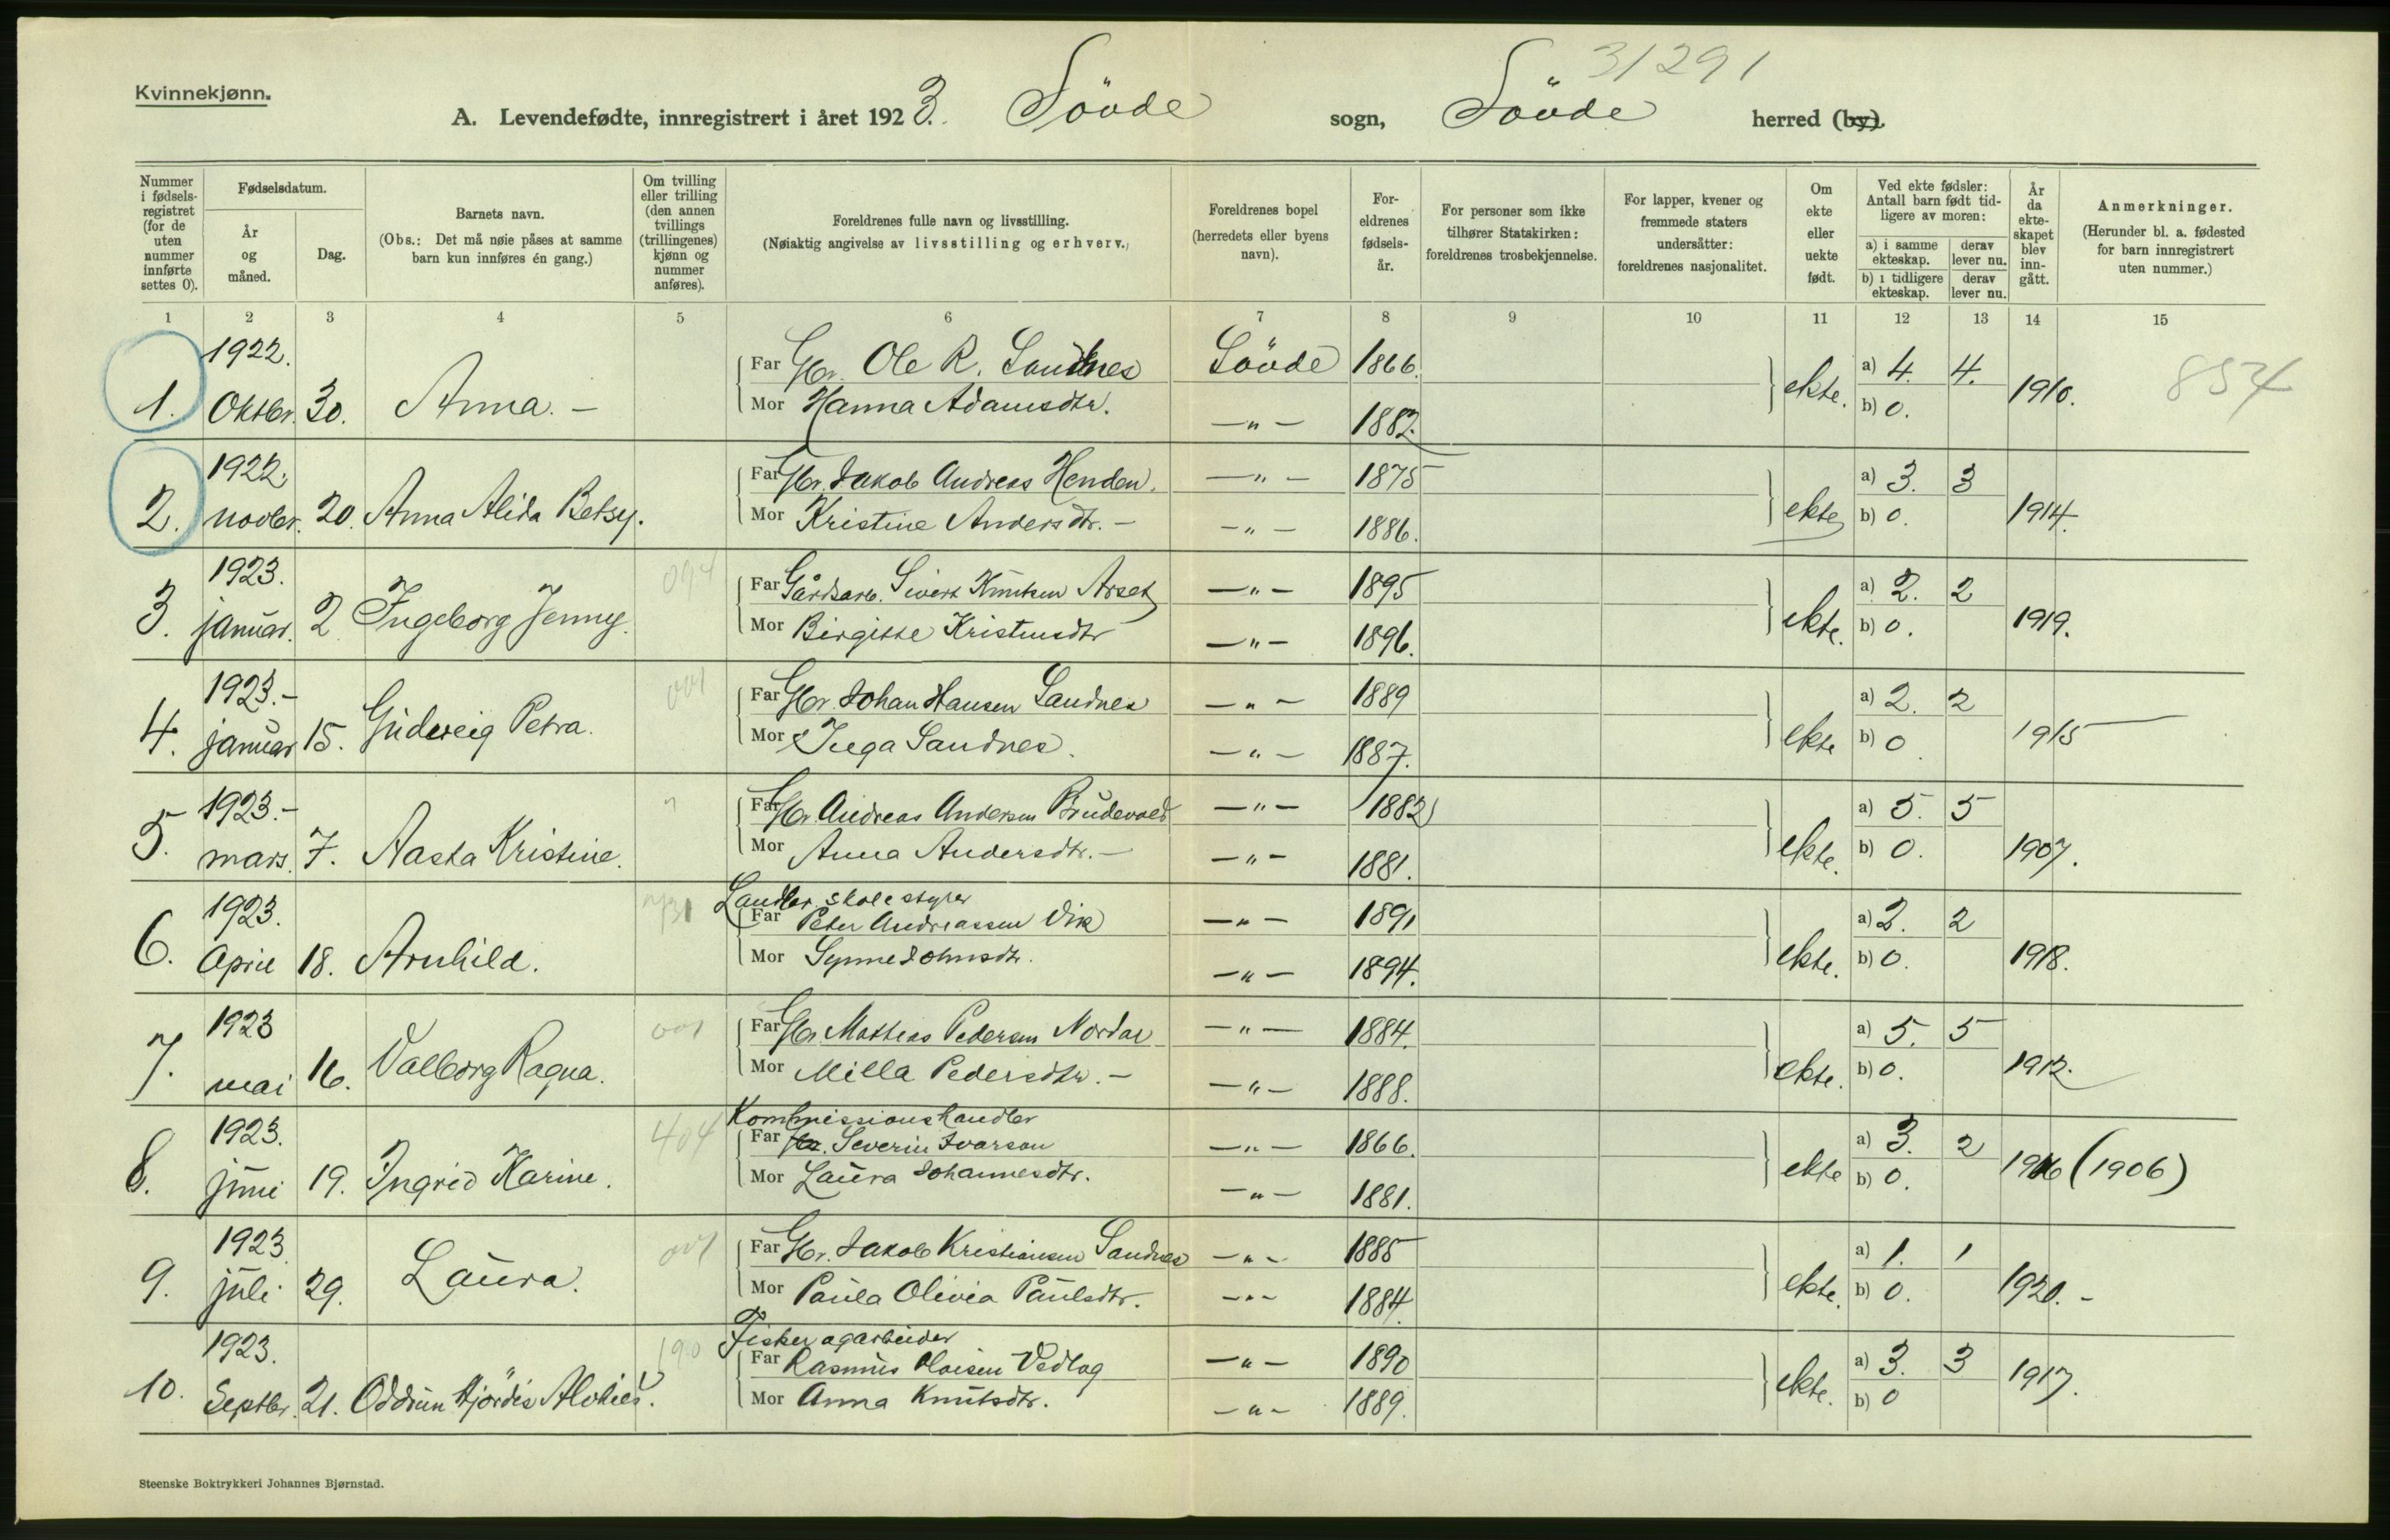 31291
Kvinnekjønn.
A. Levendefødte, innregistrert i året 1923. Søvde sogn, Søvde herred (by).
Nummer i fødsels-registret (for de uten nummer innførte settes 0).
Fødselsdatum.
År og måned.
Dag.
Barnets navn.
(Obs.: Det må nøie påses at samme barn kun innføres én gang.)
Om tvilling eller trilling (den annen tvillings (trillingenes) kjønn og nummer anføres).
Foreldrenes fulle navn og livsstilling.
(Nøiaktig angivelse av livsstilling og erhverv.)
Foreldrenes bopel (herredets eller byens navn).
For-eldrenes fødsels-år.
For personer som ikke tilhører Statskirken: foreldrenes trosbekjennelse.
For lapper, kvener og fremmede staters undersåtter: foreldrenes nasjonalitet.
Om ekte eller uekte født.
Ved ekte fødsler: Antall barn født tid-ligere av moren:
a) i samme ekteskap.
derav lever nu.
b) i tidligere ekteskap.
derav lever nu.
År da ekte-skapet blev inn-gått.
Anmerkninger.
(Herunder bl. a. fødested for barn innregistrert uten nummer.)
1 2 3 4 5 6 7 8 9 10 11 12 13 14 15
1922.
Far Gbr. Ole R. Sandnes Søvde 1866. a) 4. 4.
1. Oktbr. 30. Anna. – ekte. 1910. 854
Mor Hanna Adamsdtr. —„— 1882. b) 0.
1922.
Far Gbr. Jakob Andreas Henden. —„— 1875 a) 3. 3
2. novbr. 20. Anna Alida Betsy. ekte 1914.
Mor Kristine Andersdtr. – —„— 1886. b) 0.
1923. 094
Far Gårdsarb. Sivert Knutsen Årset —„— 1895 a) 2. 2
3. januar. 2 Ingeborg Jenny. ekte. 1919.
Mor Birgitte Kristensdtr —„— 1896. b) 0.
1923.– 001
Far Gbr. Johan Hansen Sandnes —„— 1889 a) 2. 2
4. januar 15. Gudveig Petra. ekte 1915
Mor Inga Sandnes. —„— 1887. b) 0
1923.–
Far Gbr. Andreas Andersen Brudevold —„— 1882 a) 5. 5
5. mars. 7. Aasta Kristine. ekte. 1907.
Mor Anna Andersdtr. – —„— 1881. b) 0.
Landbr. skolestyrer
1923. Far Peter Andreassen Vik —„— 1891 a) 2. 2
6. April 18. Arnhild. ekte. 1918.
Mor Synne Johnsdtr. —„— 1894. b) 0.
1923 001
Far Gbr. Mathias Pedersen Nordal —„— 1884. a) 5. 5
7. mai 16. Valborg Ragna. ekte. 1912.
Mor Milla Pedersdtr. – —„— 1888. b) 0.
Kommissionshandler
1923. 404 Far Severin Ivarson —„— 1866. a) 3. 2
8. juni 19. Ingrid Karine. ekte 1906 (1906)
Mor Laura Johannesdtr. —„— 1881. b) 0.
1923 001
Far Gbr. Jakob Kristiansen Sandnes —„— 1885 a) 1. 1
9. juli 29. Laura. ekte. 1920. –
Mor Paula Olivia Paulsdtr. —„— 1884. b) 0.
Fisker og arbeider
1923. 190 Far Rasmus Olaisen Vedlog —„— 1890 a) 3. 3
10. Septbr. 21. Oddrun Hjördis ekte. 1917.
Mor Anna Knutsdtr. —„— 1889. b) 0
Steenske Boktrykkeri Johannes Bjørnstad.